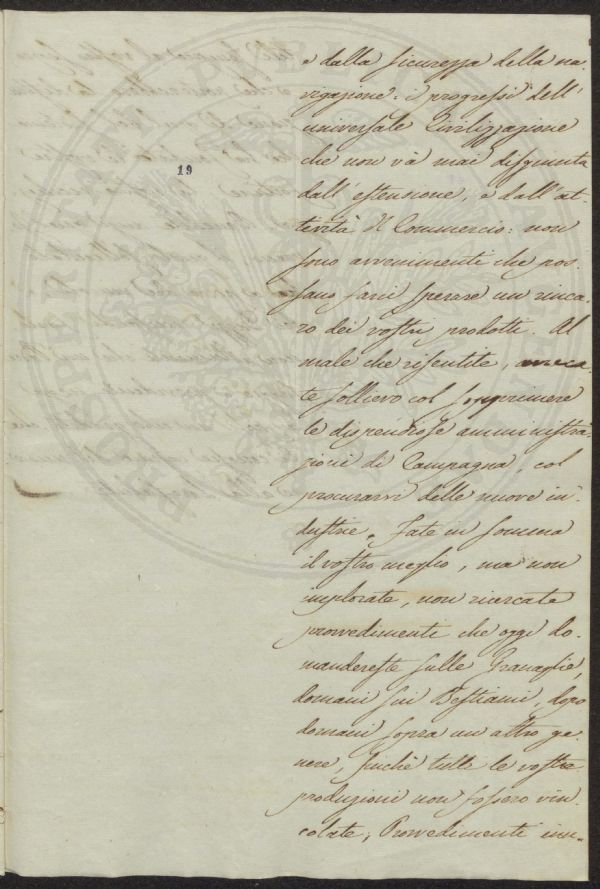 e dalla sicurezza della na-
vigazione: i progressi dell'
universale Civilizzazione
che non và mai disgiunta
19
dall'estensione, e dall'at-
tività del Commercio: non
sono avvenimenti che pos-
sano farvi sperare un rinca-
ro dei vostri prodotti. Al
male che risentite, arreca-
te sollievo col sopprimere
le dispendiose amministra-
zioni di Campagna, col
procurarvi delle nuove in-
dustrie. Fate in somma
il vostro meglio, ma non
implorate, non ricercate
provvedimenti che oggi do-
mandereste sulle Granaglie,
domani sui Bestiami, dopo
domani sopra un altro ge-
nere, finchè tutte le vostre
produzioni non fossero vin-
colate; Provvedimenti inse-
PROSPER
PUBLI